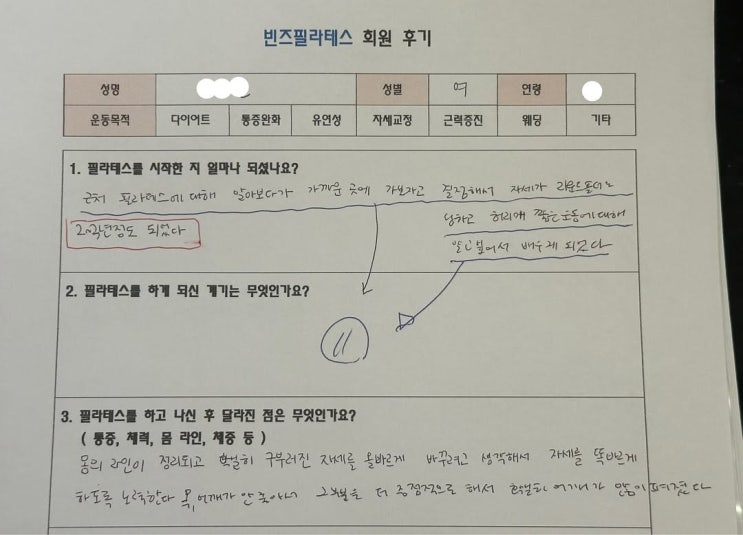 빈즈필라테스 회원 후기
성명 성별 여 연령
운동목적 다이어트 통증완화 유연성 자세교정 근력증진 웨딩 기타
1. 필라테스를 시작한 지 얼마나 되셨나요?
근처 필라테스에 대해 알아보다가 가까운 곳에 가보자고 결정해서 자세가 라운드숄더도
2~3년정도 되었다
심하고 허리에 좋은 운동에 대해
배우게 되었다
2. 필라테스를 하게 되신 계기는 무엇인가요?
11
3. 필라테스를 하고 나신 후 달라진 점은 무엇인가요?
( 통증, 체력, 몸 라인, 체중 등 )
몸의 라인이 정리되고 확실히 구부러진 자세를 올바르게 바꾸려고 생각해서 자세를 똑바르게
하도록 노력한다 목, 어깨가 안 좋아서 그부분을 더 중점적으로 해서 확실히 어깨가 많이 펴졌다